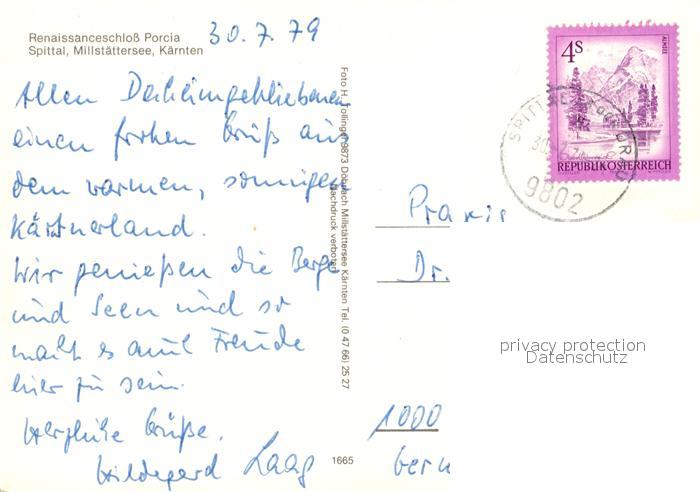 Renaissanceschloß Porcia
Spittal, Millstättersee, Kärnten
30.7.79
Allen Daheimgebliebenen
einen frohen Gruß aus
dem warmen, sonnigen
Kärtnerland.
Wir genießen die Berge
und Seen und so
macht es auch Freude
hier zu sein.
Herzliche Grüße.
Hildegard Laag
1665
Foto H. Tollinger 9873 Döbriach Millstättersee Kärnten Tel. (0 47 66) 25 27
Nachdruck verboten
4S
ALMSEE
REPUBLIK ÖSTERREICH
SPITTAL
9802
Praxis
Dr.
privacy protection
Datenschutz
1000
Berli